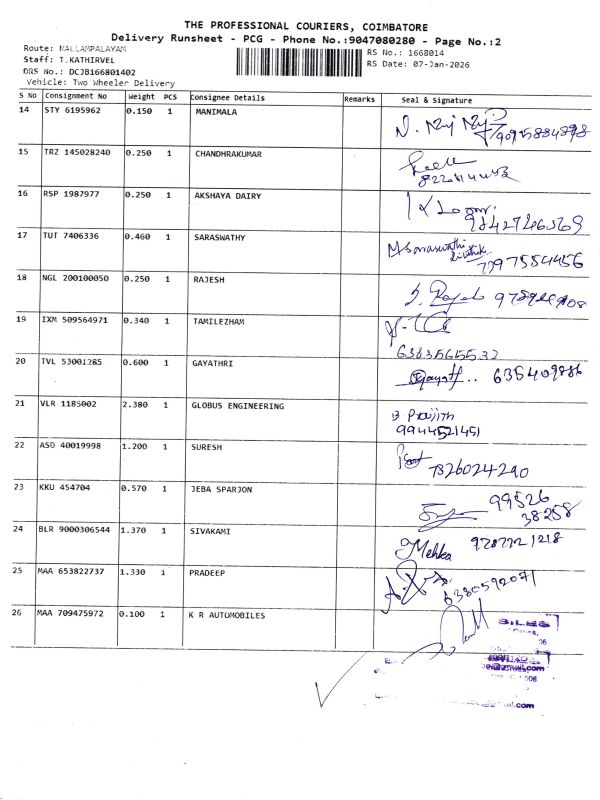 THE PROFESSIONAL COURIERS, COIMBATORE
Delivery Runsheet - PCG - Phone No.:9047080280 - Page No.:2
Route: NALLAMPALAYAM
RS No.: 1668014
Staff: T.KATHIRVEL
RS Date: 07-Jan-2026
DRS No.: DCJB166801402
Vehicle: Two Wheeler Delivery
S No Consignment No Weight PCS Consignee Details Remarks Seal & Signature
14 STY 6195962 0.150 1 MANIMALA
15 TRZ 145028240 0.250 1 CHANDHRAKUMAR
16 RSP 1987977 0.250 1 AKSHAYA DAIRY
9842746369
17 TUT 7406336 0.460 1 SARASWATHY
M Saraswathi
7397554456
18 NGL 200100050 0.250 1 RAJESH
19 IXM 509564971 0.340 1 TAMILEZHAM
6383565532
20 TVL 53001285 0.600 1 GAYATHRI
21 VLR 1185002 2.380 1 GLOBUS ENGINEERING
9944521451
22 ASD 40019998 1.200 1 SURESH
7326024290
23 KKU 454704 0.570 1 JEBA SPARJON
99526
38258
24 BLR 9000306544 1.370 1 SIVAKAMI
Mehka
25 MAA 653822737 1.330 1 PRADEEP
6380592071
26 MAA 709475972 0.100 1 K R AUTOMOBILES